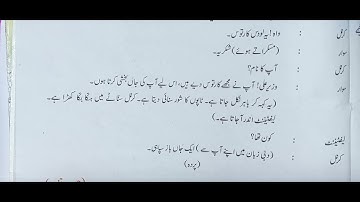 کرنل : واہ! یہ لو دس کارتوس۔
سوار : (مسکراتے ہوئے) شکریہ۔
کرنل : آپ کا نام؟
سوار : وزیر علی! آپ نے مجھے کارتوس دیے ہیں، اس لیے آپ کی جاں بخشی کرتا ہوں۔
(یہ کہہ کر باہر نکل جاتا ہے۔ ٹاپوں کا شور سنائی دیتا ہے۔ کرنل سناٹے میں ہکا بکا کھڑا ہے۔
لیفٹیننٹ اندر آ جاتا ہے۔)
لیفٹیننٹ : کون تھا؟
کرنل : (دبی زبان میں اپنے آپ سے) ایک جاں باز سپاہی۔
(پردہ)